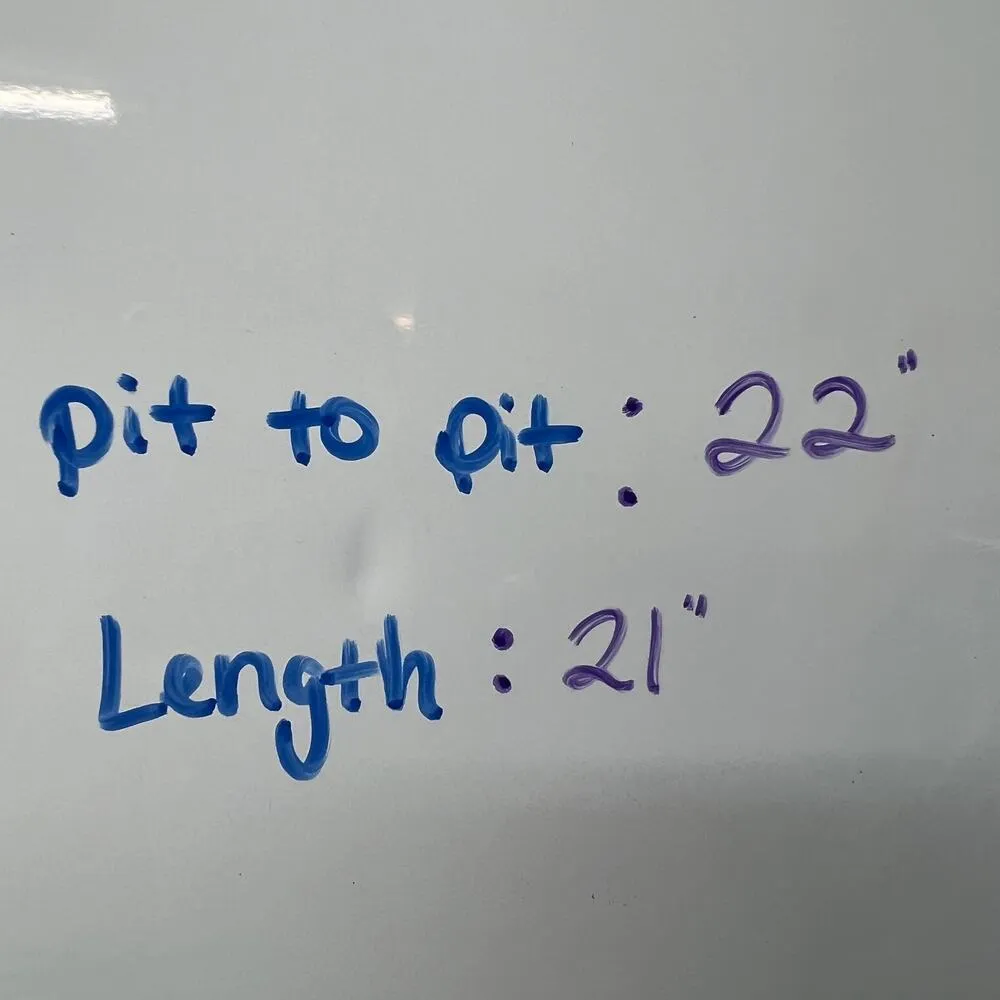 pit to pit : 22"
Length : 21"